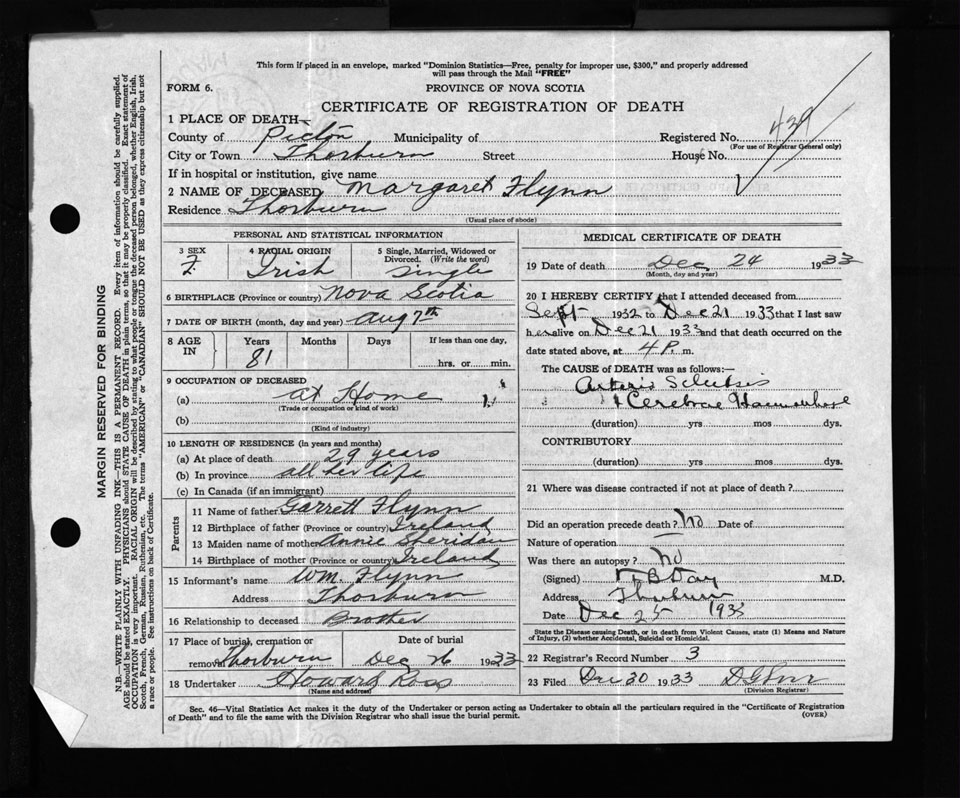 This form if placed in an envelope, marked "Dominion Statistics—Free, penalty for improper use, $300," and properly addressed
will pass through the Mail "FREE"
FORM 6.
PROVINCE OF NOVA SCOTIA
CERTIFICATE OF REGISTRATION OF DEATH
1 PLACE OF DEATH—
County of Pictou Municipality of Registered No. 439
(For use of Registrar General only)
City or Town Thorburn Street House No.
If in hospital or institution, give name
2 NAME OF DECEASED Margaret Flynn
Residence Thorburn
(Usual place of abode)
PERSONAL AND STATISTICAL INFORMATION
3 SEX 4 RACIAL ORIGIN 5 Single, Married, Widowed or
Divorced. (Write the word)
F. Irish Single
6 BIRTHPLACE (Province or country) Nova Scotia
7 DATE OF BIRTH (month, day and year) Aug 7th
8 AGE IN Years Months Days If less than one day,
81 hrs. or min.
9 OCCUPATION OF DECEASED
(a) at Home
(Trade or occupation or kind of work)
(b)
(Kind of industry)
10 LENGTH OF RESIDENCE (in years and months)
(a) At place of death 29 years
(b) In province all her life
(c) In Canada (if an immigrant)
Parents
11 Name of father Garrett Flynn
12 Birthplace of father (Province or country) Ireland
13 Maiden name of mother Annie Sheridan
14 Birthplace of mother (Province or country) Ireland
15 Informant's name Wm. Flynn
Address Thorburn
16 Relationship to deceased Brother
17 Place of burial, cremation or Date of burial
removal Thorburn Dec 26 1933
18 Undertaker Howard Ross
(Name and address)
MEDICAL CERTIFICATE OF DEATH
19 Date of death Dec 24 1933
(Month, day and year)
20 I HEREBY CERTIFY that I attended deceased from
Sept 1932 to Dec 21 1933 that I last saw
her alive on Dec 21 1933 and that death occurred on the
date stated above, at 4 P. m.
The CAUSE OF DEATH was as follows:—
Arterio Sclerosis
& Cerebral Haemorrhage
(duration) yrs mos dys.
CONTRIBUTORY
(duration) yrs. mos dys.
21 Where was disease contracted if not at place of death?
Did an operation precede death? No Date of
Nature of operation
Was there an autopsy? No
(Signed) Day M.D.
Address Thorburn
Date Dec 25 1933
State the Disease causing Death, or in death from Violent Causes, state (1) Means and Nature
of Injury, (2) whether Accidental, Suicidal or Homicidal.
22 Registrar's Record Number 3
23 Filed Dec 30 1933
(Division Registrar)
Sec. 46—Vital Statistics Act makes it the duty of the Undertaker or person acting as Undertaker to obtain all the particulars required in the "Certificate of Registration
of Death" and to file the same with the Division Registrar who shall issue the burial permit.
(OVER)
MARGIN RESERVED FOR BINDING
N.B.—WRITE PLAINLY WITH UNFADING INK—THIS IS A PERMANENT RECORD. Every item of information should be carefully supplied.
AGE should be stated EXACTLY. PHYSICIANS should STATE CAUSE OF DEATH in plain terms, so that it may be properly classified. Exact statement of
OCCUPATION is very important. RACIAL ORIGIN will be described by stating to what people or tongue the deceased person belonged, whether English, Irish,
Scotch, French, German, Russian, Ruthenian, etc. The terms "AMERICAN" or "CANADIAN" SHOULD NOT BE USED as they express citizenship but not
a race or people. See instructions on back of Certificate.